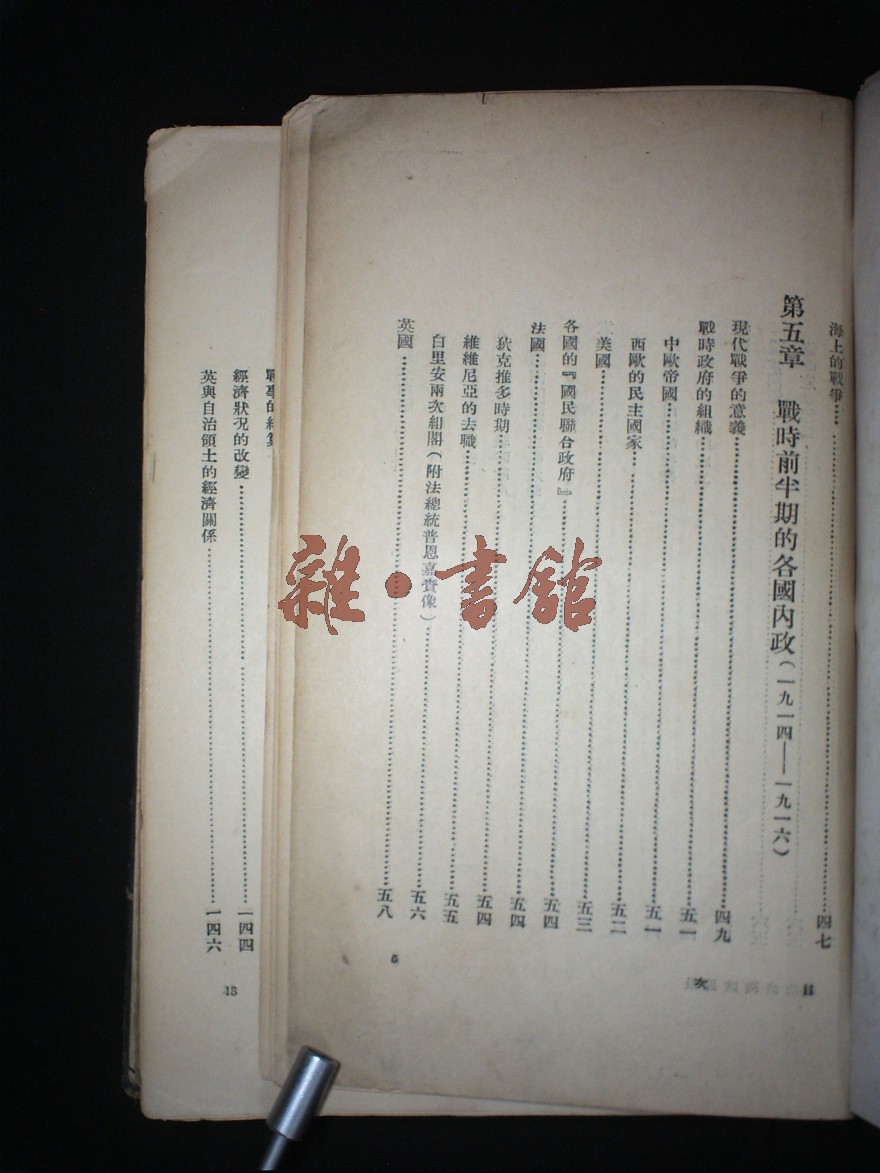 海上的戰爭……四七
第五章 戰時前半期的各國內政（一九一四——一九一六）
現代戰爭的意義……四九
戰時政府的組織……五一
中歐帝國……五一
西歐的民主國家……五二
美國……五三
各國的『國民聯合政府』……五四
法國……五四
狄克推多時期……五四
維維尼亞的去職……五五
白里安兩次組閣（附法總統普恩嘉賚像）……五六
英國……五八
目次
5
經濟狀況的改變……一四四
英與自治領土的經濟關係……一四六
13
雜·書館